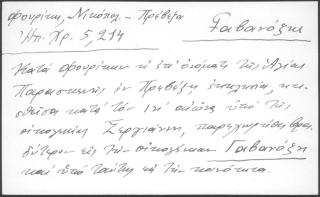 Φουρίκη, Νικόπολ. – Πρέβεζα Γαβανόζης
Ἠπ. Χρ. 5, 214
Κατὰ Φουρίκην ἡ ἐπ' ὀνόματι τῆς Ἁγίας
Παρασκευῆς ἐν Πρεβέζῃ ἐκκλησία, κτι-
σθεῖσα κατὰ τὸν ιη' αἰῶνα ὑπὸ τῆς
οἰκογενείας Ζεργιάννη, παρεχωρήθη βρα-
δύτερον εἰς τὴν οἰκογένειαν Γαβανόζη
καὶ ὑπὸ ταύτης εἰς τὴν κοινότητα.